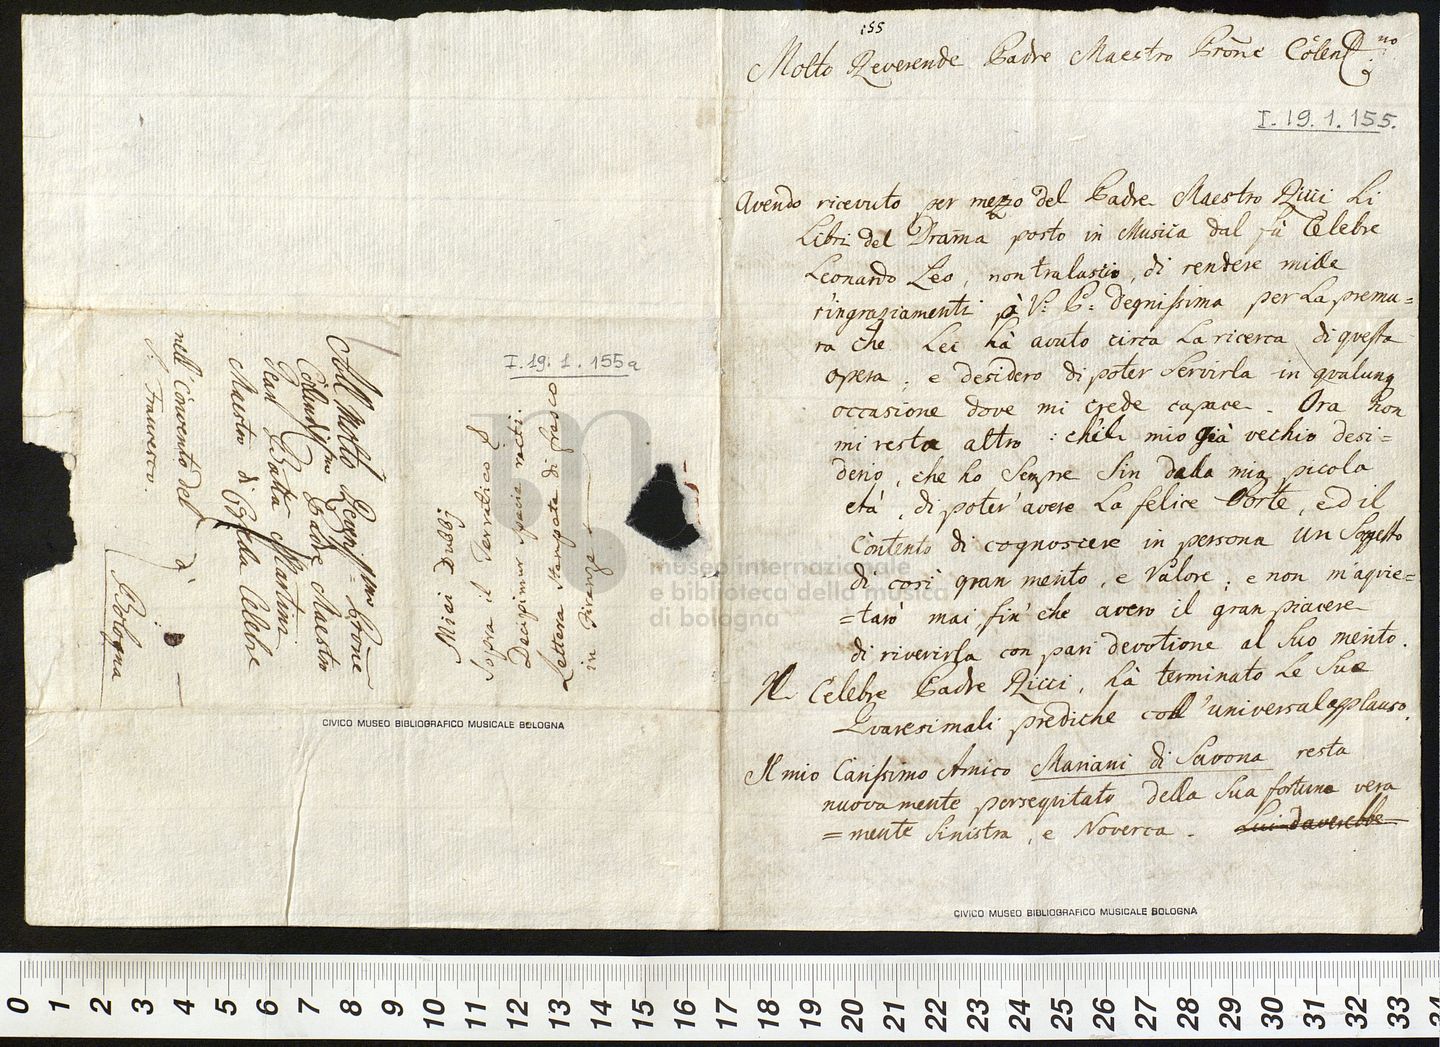 155
Molto Reverende Padre Maestro Prõne Cõlen
I. 19. 1. 155.
Avendo ricevuto per mezzo del Padre Maestro Ricci Li
Libri del Drama posto in Musica dal fù Celebre
Leonardo Leo, non tralascio, di rendere mille
ringraziamenti à V: P: degnissima per La premu=
ra che Lei hà avuto circa La ricerca di questa
opera; e desidero di poter Servirla in qualunq
occasione dove mi crede capace. Ora non
mi resta altro: ch'il mio già vechio desi=
derio, che ho Sempre Sin dalla mia picola
età, di poter avere La felice Sorte, ed il
Contento di cognoscere in persona un Soggetto
di così gran merito, e Valore; e non m'aquie=
=tarò mai, fin' che averò il gran piacere
di riverirla con pari devotione al Suo merito.
Il Celebre Padre Ricci, hà terminato Le Sue
Quaresimali prediche coll'universal applauso.
Il mio Carissimo Amico Mariani di Savona resta
nuovamente persequitato della Sua fortuna vera
=mente Sinistra, e Noverca. Lui daverebbe
CIVICO MUSEO BIBLIOGRAFICO MUSICALE BOLOGNA
I. 19. 1. 155a
Miei Dubbj
Sopra il Terralico
Decipimur specie recti.
Lettera Stampata di fresco
in Firenze
All Molto Prõne
Padre Maestro
Gean Batta Martini
Maestro di Cap̃ella Celebre
nell' Convento del
S. Francesco.
à
Bologna
CIVICO MUSEO BIBLIOGRAFICO MUSICALE BOLOGNA
museo internazionale
e biblioteca della musica
di bologna
0 1 2 3 4 5 6 7 8 9 10 11 12 13 14 15 16 17 18 19 20 21 22 23 24 25 26 27 28 29 30 31 32 33 34